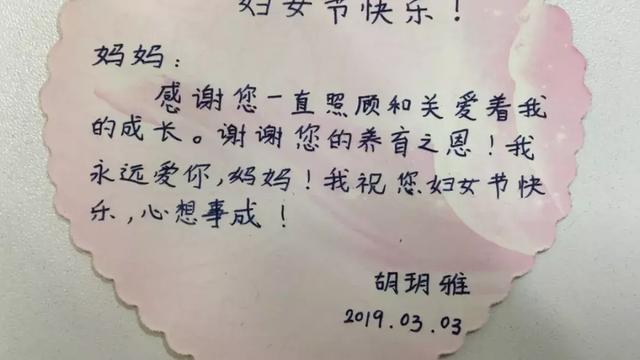 妇女节快乐!
妈妈:
感谢您一直照顾和关爱着我
的成长。谢谢您的养育之恩!我
永远爱你,妈妈!我祝您妇女节快
乐,心想事成!
胡玥雅
2019.03.03